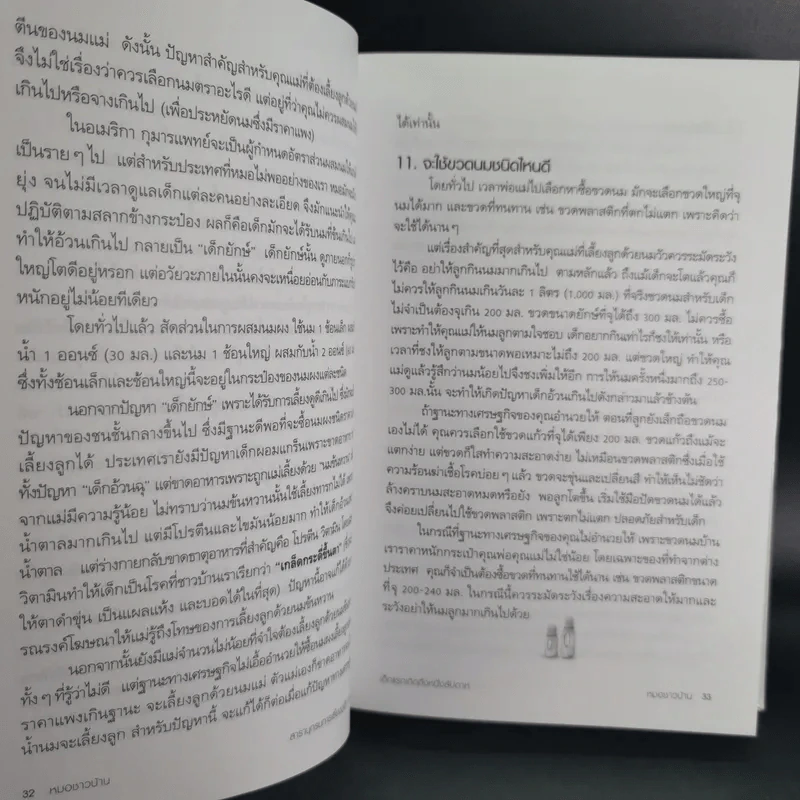 ตีนของนมแม่ ดังนั้น ปัญหาสำคัญสำหรับคุณแม่ที่ต้องเลี้ยงลูกด้วย
จึงไม่ใช่เรื่องว่าควรเลือกนมตราอะไรดี แต่อยู่ที่ว่าคุณไม่ควรผสมนม
เกินไปหรือจางเกินไป (เพื่อประหยัดนมซึ่งมีราคาแพง)
ในอเมริกา กุมารแพทย์จะเป็นผู้กำหนดอัตราส่วนผสมนม
เป็นราย ๆ ไป แต่สำหรับประเทศที่หมอไม่พออย่างของเรา หมอมัก
ยุ่ง จนไม่มีเวลาดูแลเด็กแต่ละคนอย่างละเอียด จึงมักแนะนำให้คุณ
ปฏิบัติตามสลากข้างกระป๋อง ผลก็คือเด็กมักจะได้รับนมที่ข้นเกินไป
ทำให้อ้วนเกินไป กลายเป็น "เด็กยักษ์" เด็กยักษ์นั้น ดูภายนอกก็
ใหญ่โตดีอยู่หรอก แต่อวัยวะภายในนั้นคงจะเหนื่อยอ่อนกับการแบก
หนักอยู่ไม่น้อยทีเดียว
โดยทั่วไปแล้ว สัดส่วนในการผสมนมผง ใช้นม 1 ช้อนเล็ก
น้ำ 1 ออนซ์ (30 มล.) และนม 1 ช้อนใหญ่ ผสมกับน้ำ 2 ออนซ์
ซึ่งทั้งช้อนเล็กและช้อนใหญ่นี้จะอยู่ในกระป๋องของนมผงแต่ละชนิด
นอกจากปัญหา "เด็กยักษ์" เพราะได้รับการเลี้ยงดูดีเกินไป ซึ่งมัก
ปัญหาของชนชั้นกลางขึ้นไป ซึ่งมีฐานะดีพอที่จะซื้อนมผงชนิด
เลี้ยงลูกได้ ประเทศเรายังมีปัญหาเด็กผอมแกร็นเพราะขาดอาหาร
ทั้งปัญหา "เด็กอ้วนฉุ" แต่ขาดอาหารเพราะถูกแม่เลี้ยงด้วย "นมข้นหวาน"
จากแม่มีความรู้น้อย ไม่ทราบว่านมข้นหวานนั้นใช้เลี้ยงทารกไม่ได้
น้ำตาลมากเกินไป แต่มีโปรตีนและไขมันน้อยมาก ทำให้เด็กอ้วน
น้ำตาล แต่ร่างกายกลับขาดธาตุอาหารที่สำคัญคือ โปรตีน วิตามิน
วิตามินทำให้เด็กเป็นโรคที่ชาวบ้านเราเรียกว่า "เกล็ดกระดี่ขึ้นตา"
ให้ตาดำขุ่น เป็นแผลแห้ง และบอดได้ในที่สุด) ปัญหานี้อาจแก้ได้
รณรงค์โฆษณาให้แม่รู้ถึงโทษของการเลี้ยงลูกด้วยนมข้นหวาน
นอกจากนั้นยังมีแม่จำนวนไม่น้อยที่จำใจต้องเลี้ยงลูกด้วยนม
ทั้ง ๆ ที่รู้ว่าไม่ดี แต่ฐานะทางเศรษฐกิจไม่เอื้ออำนวยให้ซื้อนมผง
ราคาแพงเกินฐานะ จะเลี้ยงลูกด้วยนมแม่ ตัวแม่เองก็ขาดอาหาร
น้ำนมจะเลี้ยงลูก สำหรับปัญหานี้ จะแก้ได้ก็ต่อเมื่อแก้ปัญหา
32 หมอชาวบ้าน
ได้เท่านั้น
11. จะใช้ขวดนมชนิดไหนดี
โดยทั่วไป เวลาพ่อแม่ไปเลือกหาซื้อขวดนม มักจะเลือกขวดใหญ่ที่จุ
นมได้มาก และขวดที่ทนทาน เช่น ขวดพลาสติกที่ตกไม่แตก เพราะคิดว่า
จะใช้ได้นาน ๆ
แต่เรื่องสำคัญที่สุดสำหรับคุณแม่ที่เลี้ยงลูกด้วยนมวัวควรระมัดระวัง
ไว้คือ อย่าให้ลูกกินนมมากเกินไป ตามหลักแล้ว ถึงแม้เด็กจะโตแล้วคุณก็
ไม่ควรให้ลูกกินนมเกินวันละ 1 ลิตร (1,000 มล.) ที่จริงขวดนมสำหรับเด็ก
ไม่จำเป็นต้องจุเกิน 200 มล. ขวดขนาดยักษ์ที่จุได้ถึง 300 มล. ไม่ควรซื้อ
เพราะทำให้คุณแม่ให้นมลูกตามใจชอบ เด็กอยากกินเท่าไรก็ชงให้เท่านั้น หรือ
เวลาที่ชงให้ลูกตามขนาดพอเหมาะไม่ถึง 200 มล. แต่ขวดใหญ่ ทำให้คุณ
แม่ดูแล้วรู้สึกว่านมน้อยไปจึงชงเพิ่มให้อีก การให้นมครั้งหนึ่งมากถึง 250-
300 มล.นั้น จะทำให้เกิดปัญหาเด็กอ้วนเกินไปดังกล่าวมาแล้วข้างต้น
ถ้าฐานะทางเศรษฐกิจของคุณอำนวยให้ ตอนที่ลูกยังเล็กถือขวดนม
เองไม่ได้ คุณควรเลือกใช้ขวดแก้วที่จุได้เพียง 200 มล. ขวดแก้วถึงแม้จะ
แตกง่าย แต่ขวดก็ใสทำความสะอาดง่าย ไม่เหมือนขวดพลาสติกซึ่งเมื่อใช้
ความร้อนฆ่าเชื้อโรคบ่อย ๆ แล้ว ขวดจะขุ่นและเปลี่ยนสี ทำให้เห็นไม่ชัดว่า
ล้างคราบนมสะอาดหมดหรือยัง พอลูกโตขึ้น เริ่มใช้มือปัดขวดนมได้แล้ว
จึงค่อยเปลี่ยนไปใช้ขวดพลาสติก เพราะตกไม่แตก ปลอดภัยสำหรับเด็ก
ในกรณีที่ฐานะทางเศรษฐกิจของคุณไม่อำนวยให้ เพราะขวดนมบ้าน
เราราคาหนักกระเป๋าคุณพ่อคุณแม่ไม่ใช่น้อย โดยเฉพาะของที่ทำจากต่าง
ประเทศ คุณก็จำเป็นต้องซื้อขวดที่ทนทานใช้ได้นาน เช่น ขวดพลาสติกขนาด
ที่จุ 200-240 มล. ในกรณีนี้ควรระมัดระวังเรื่องความสะอาดให้มากและ
ระวังอย่าให้นมลูกมากเกินไปด้วย
หมอชาวบ้าน 33